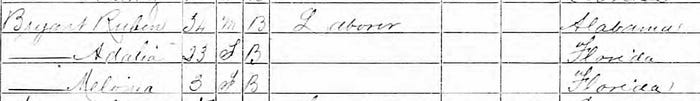 Bryant Rubin 24 M B Laborer Alabama
—— Adalia 23 F B Florida
—— Melvina 3 F B Florida